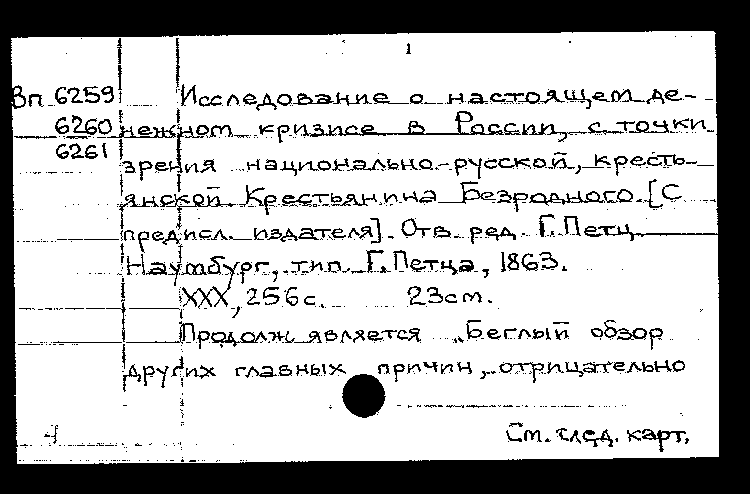 1
Вп 6259 Исследование о настоящем де-
6260 нежном кризисе в России, с точки
6261 зрения национально-русской, кресть-
янской. Крестьянина Безродного. [С
предисл. издателя]. Отв. ред. Г. Петц.
Наумбург, тип. Г. Петца, 1863.
XXX, 256 с. 23 см.
Продолж. является "Беглый обзор
других главных причин, отрицательно
4 См. след. карт.